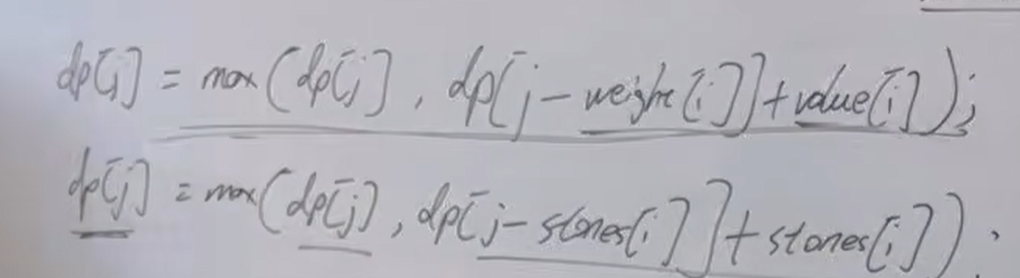 dp[j] = max(dp[j], dp[j-weight[i]]+value[i]);
dp[j] = max(dp[j], dp[j-stones[i]]+stones[i]);